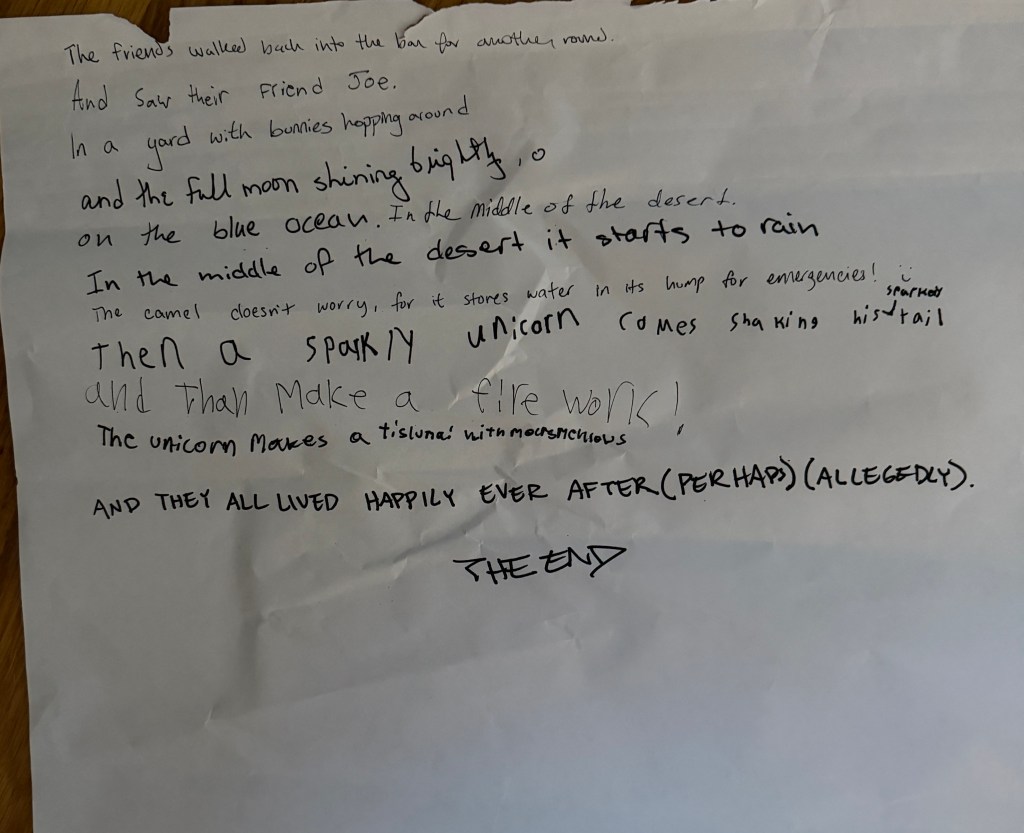 The friends walked back into the bar for another round.
And Saw their Friend Joe.
In a yard with bunnies hopping around
and the full moon shining brightly,
on the blue ocean. In the middle of the desert.
In the middle of the desert it starts to rain
The camel doesn't worry, for it stores water in its hump for emergencies!
Then a sparkly unicorn comes shaking his tail
and than make a fire work!
The unicorn makes a
AND THEY ALL LIVED HAPPILY EVER AFTER (PERHAPS) (ALLEGEDLY).
THE END